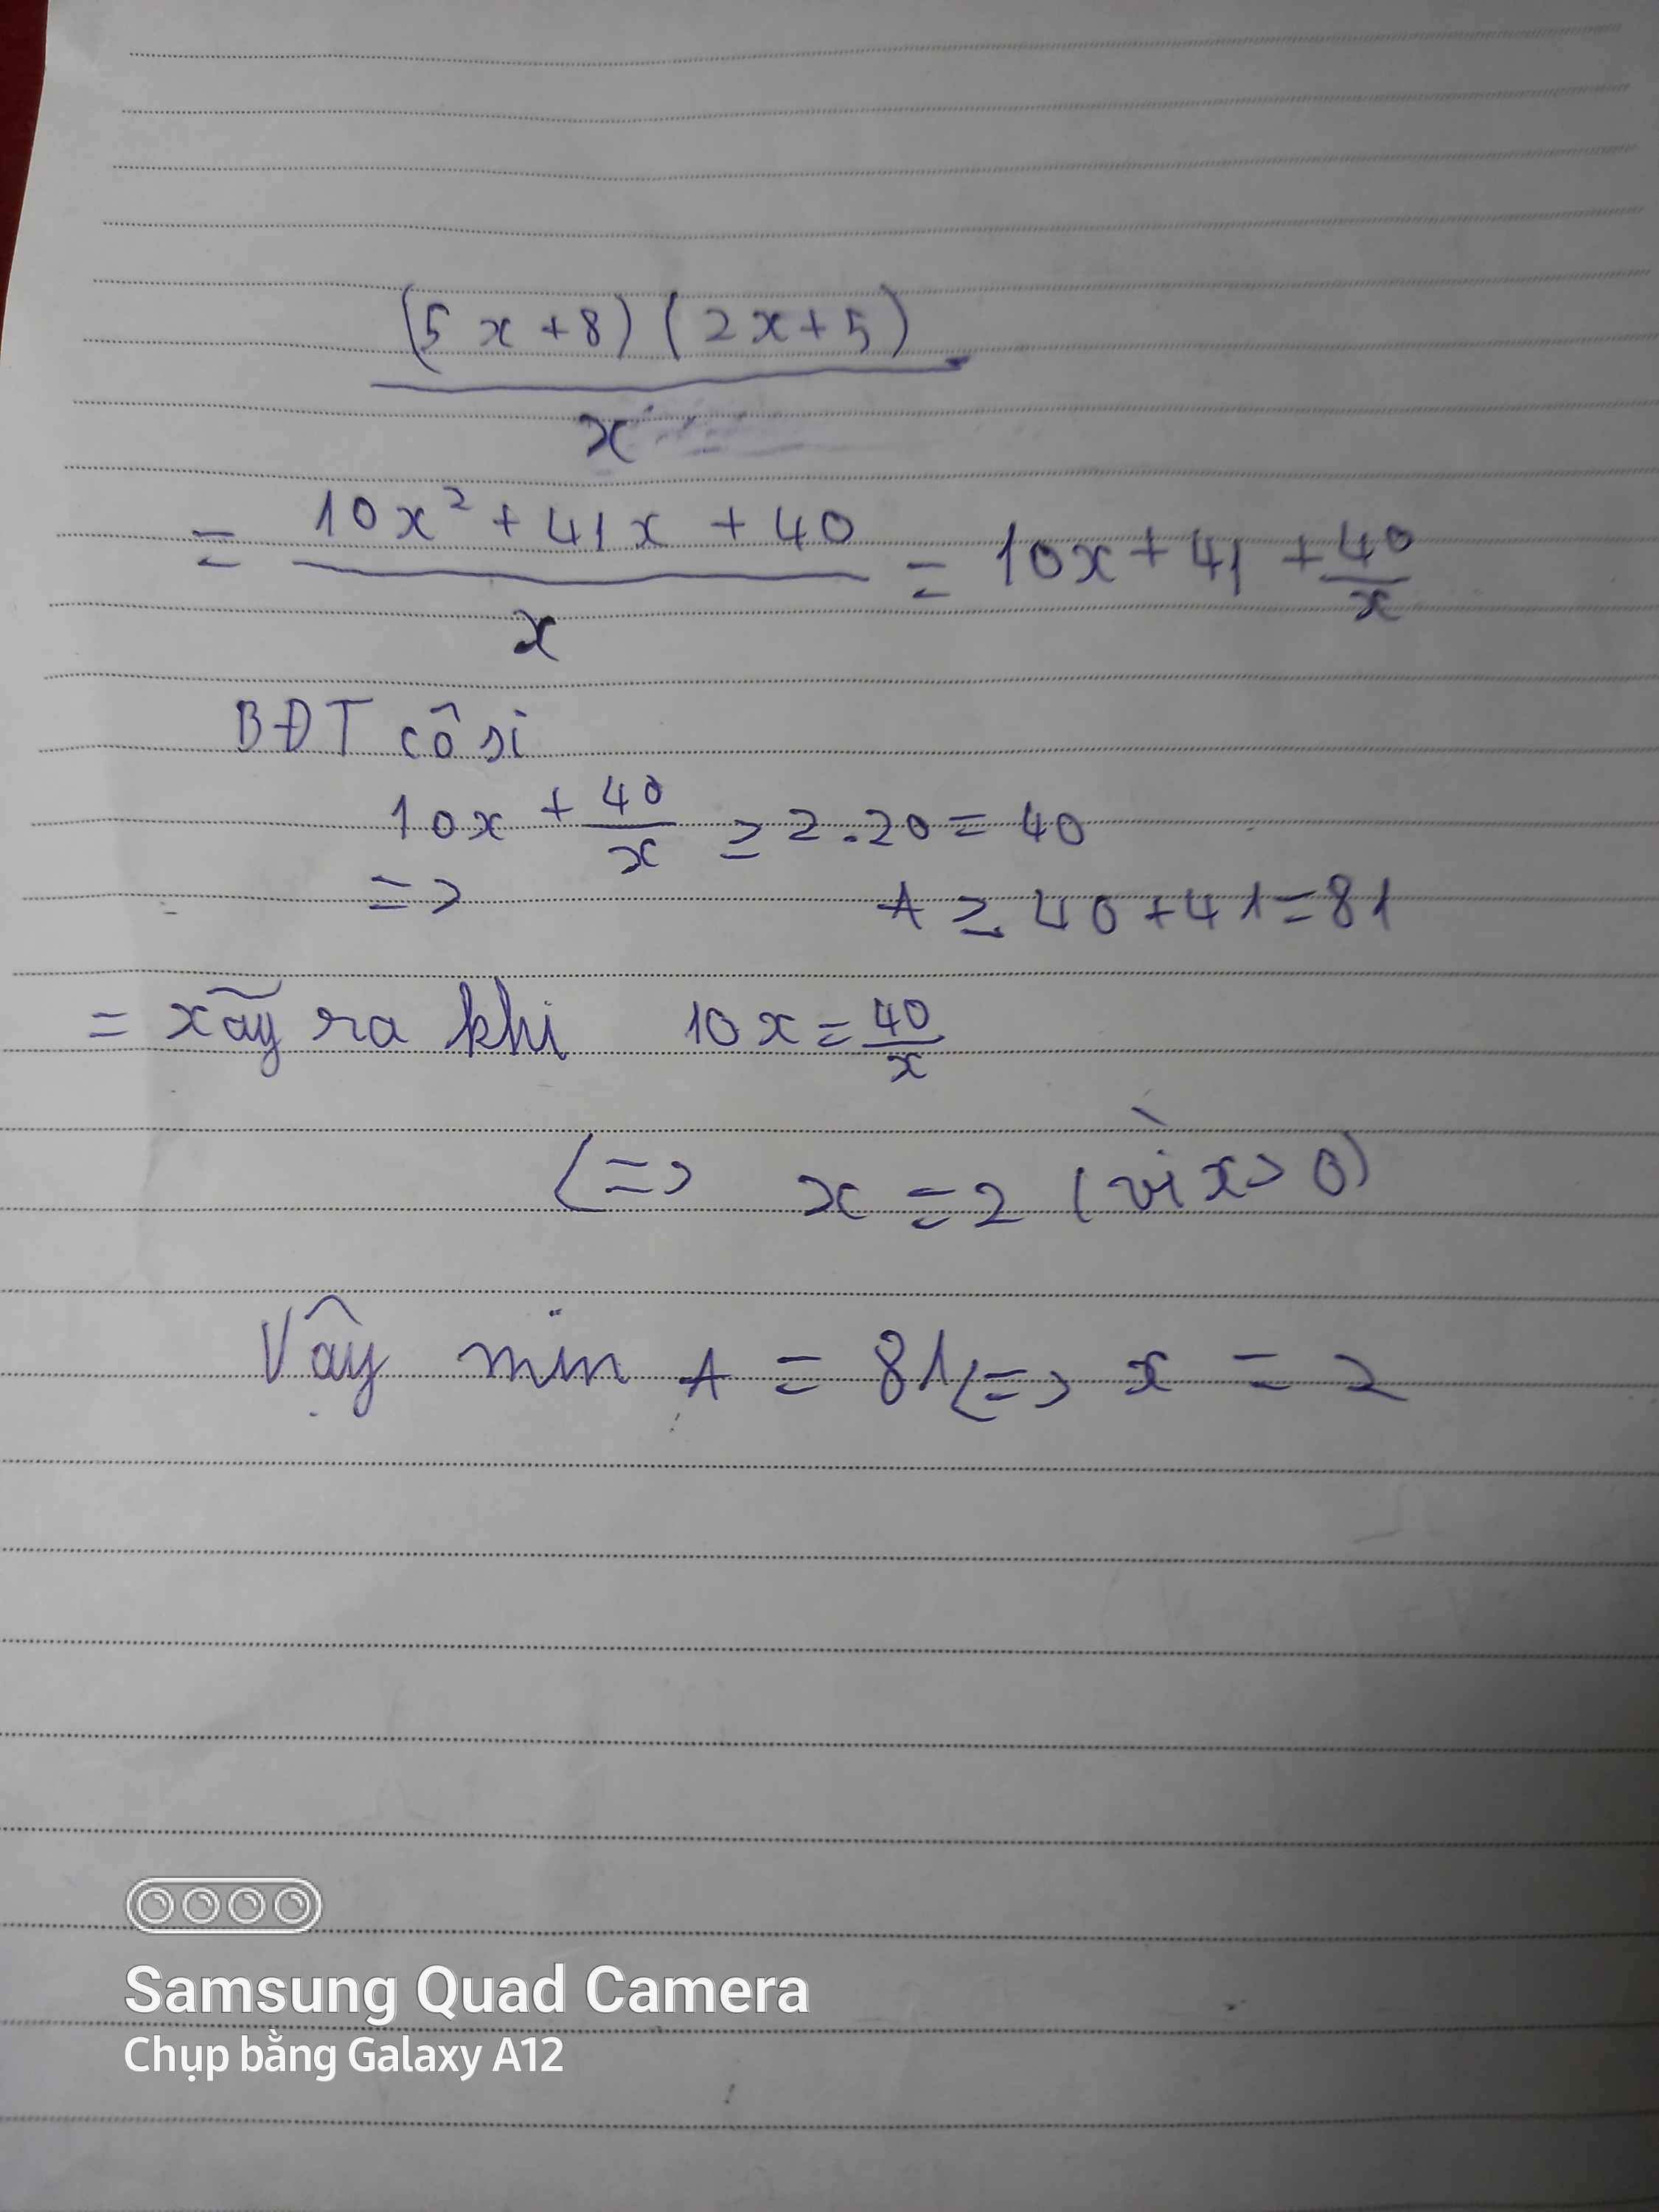 (5x+8)(2x+5)
x
= 10x² + 41x + 40 = 10x + 41 + 40
x x
BĐT côsi
10x + 40/x ≥ 2.20 = 40
=> A ≥ 40 + 41 = 81
= xãy ra khi 10x = 40/x
(=> x = 2 (vì x > 0)
Vậy min A = 81 (=> x = 2
Samsung Quad Camera
Chụp bằng Galaxy A12